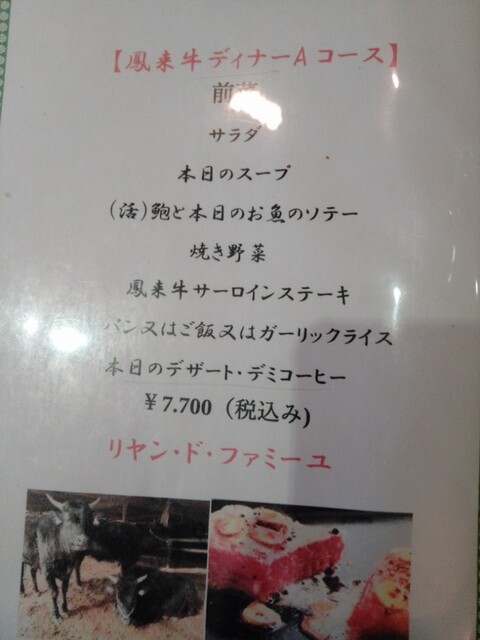 【鳳来牛ディナーA コース】
前菜
サラダ
本日のスープ
(活)鮑と本日のお魚のソテー
焼き野菜
鳳来牛サーロインステーキ
パン又はご飯又はガーリックライス
本日のデザート・デミコーヒー
¥7.700 (税込み)
リヤン・ド・ファミーユ